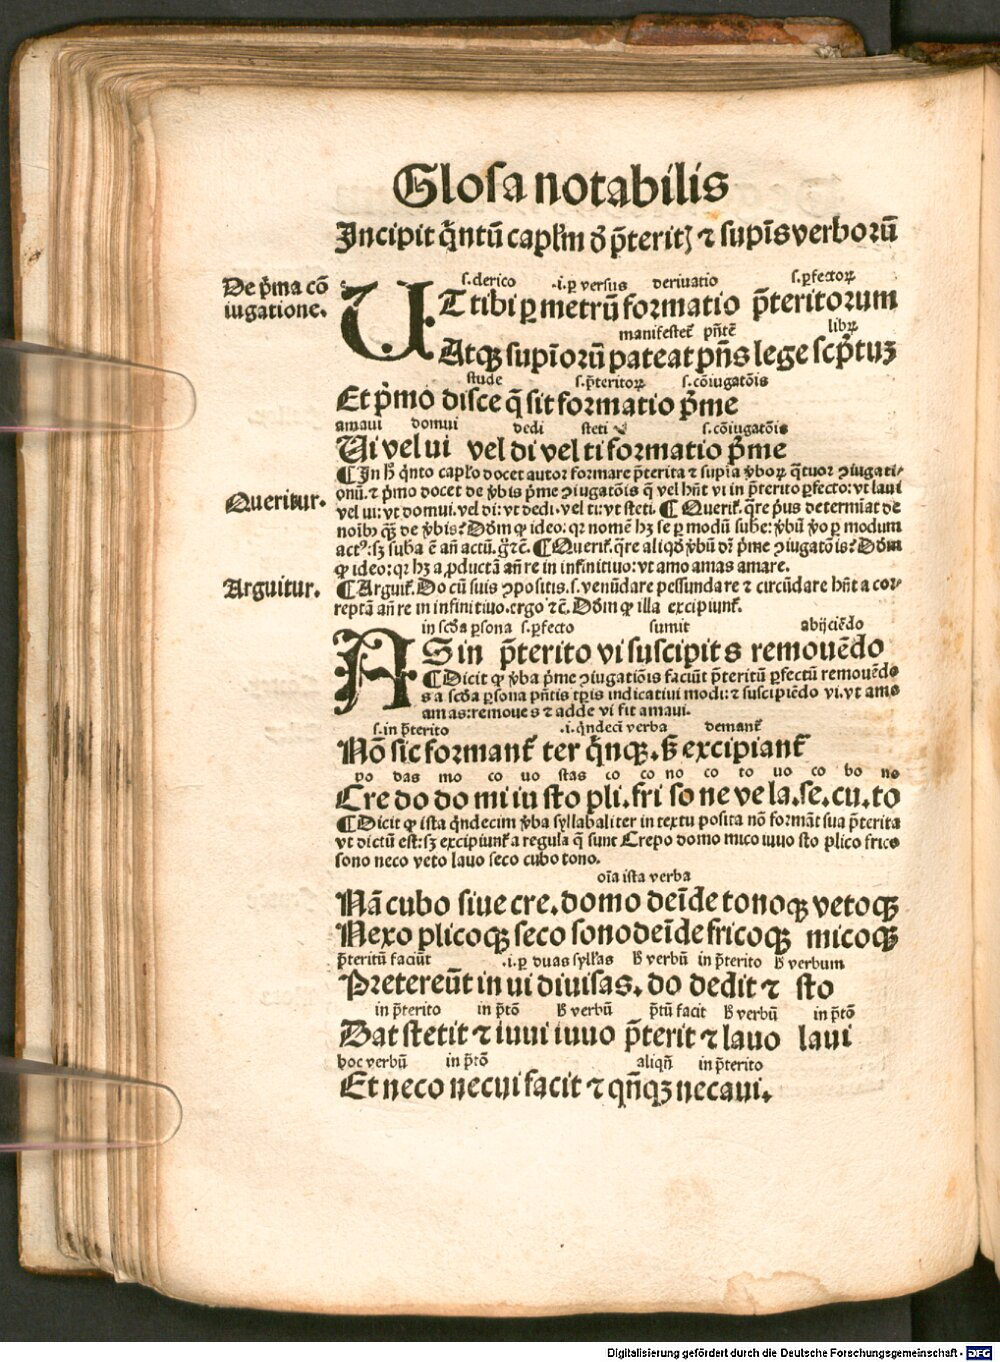 Glosa notabilis
Incipit q̃ntũ capl̃m ð p̃teritꝭ ⁊ supĩs verborũ
De p̃ma cõ
iugatione.
s.clerico .i.ꝑ versus deriuatio s.ꝑfectoꝝ
UT tibi ꝑ metrũ formatio p̃teritorum
manifestet̃ pñtẽ libꝝ
Atqꝫ supĩorũ pateat pñs lege sc̃ptuꝫ
stude s.p̃teritoꝝ s.cõiugatõis
Et p̃mo disce q̃ sit formatio p̃me
amaui domui dedi steti s.cõiugatõis
Ui vel ui vel di vel ti formatio p̃me
¶ In h̃ q̃nto capl̃o docet autor formare p̃terita ⁊ supĩa ṽboꝝ q̃tuor ꝯiugati⸗
onũ.⁊ p̃mo docet de ṽbis p̃me ꝯiugatõis q̃ vel hñt vi in p̃terito ꝑfecto:vt laui
Queritur.
vel ui:vt domui.vel di:vt dedi.vel ti:vt steti. ¶ Querit̃.q̃re p̃us determĩat de
noĩbꝫ qꝫ̃ de ṽbis? Dõm ꝙ ideo:qꝛ nomẽ hꝫ se ꝑ modũ sube:ṽbũ ṽo ꝑ modum
actꝰ:sꝫ suba ẽ añ actũ.g̃ꝛc̃. ¶ Querit̃.q̃re aliqð ṽbũ dr̃ p̃me ꝯiugatõis? Dõm
ꝙ ideo:qꝛ hꝫ a ꝓductã añ re in infinitiuo:vt amo amas amare.
Arguitur.
¶ Arguit̃.Do cũ suis ꝯpositis.s.venũdare pessundare ⁊ circũdare hñt a cor⸗
reptã añ re in infinitiuo.ergo ⁊c̃. Dõm ꝙ illa excipiunt̃.
in sc̃ða ꝑsona s.ꝑfecto sumit abijciẽdo
AS in p̃terito vi suscipit s remouẽdo
¶ Dicit ꝙ ṽba p̃me ꝯiugatiõis faciũt p̃teritũ ꝑfectũ remouẽdo
s a sc̃ða ꝑsona pñtis tp̃is indicatiui modi:⁊ suscipiẽdo vi.vt amo
amas:remoue s ⁊ adde vi fit amaui.
s.in p̃terito .i.q̃ndecĩ verba demant̃
Nõ sic formant̃ ter q̃nqꝫ.ß excipiant̃
po das mo co uo stas co co no co to uo co bo no
Cre do do mi iu sto pli.fri so ne ve la.se.cu.to
¶ Dicit ꝙ ista q̃ndecim ṽba syllabaliter in textu posita nõ formãt sua p̃terita
vt dictũ est:sꝫ excipiunt̃ a regula q̃ sunt Crepo domo mico iuuo sto plico frico
sono neco veto lauo seco cubo tono.
oĩa ista verba
Nã cubo siue cre.domo deĩde tonoqꝫ vetoqꝫ
Nexo plicoqꝫ seco sono deĩde fricoqꝫ micoqꝫ
p̃teritũ faciũt .i.ꝑ duas syll̃as ß verbũ in p̃terito ß verbum
Pretereũt in ui diuisas.do dedit ⁊ sto
in p̃terito in p̃tõ ß verbũ p̃tũ facit ß verbũ in p̃tõ
Dat stetit ⁊ iuui iuuo p̃terit ⁊ lauo laui
hoc verbũ in p̃tõ aliqñ in p̃terito
Et neco necui facit ⁊ qñqꝫ necaui.
Digitalisierung gefördert durch die Deutsche Forschungsgemeinschaft - DFG